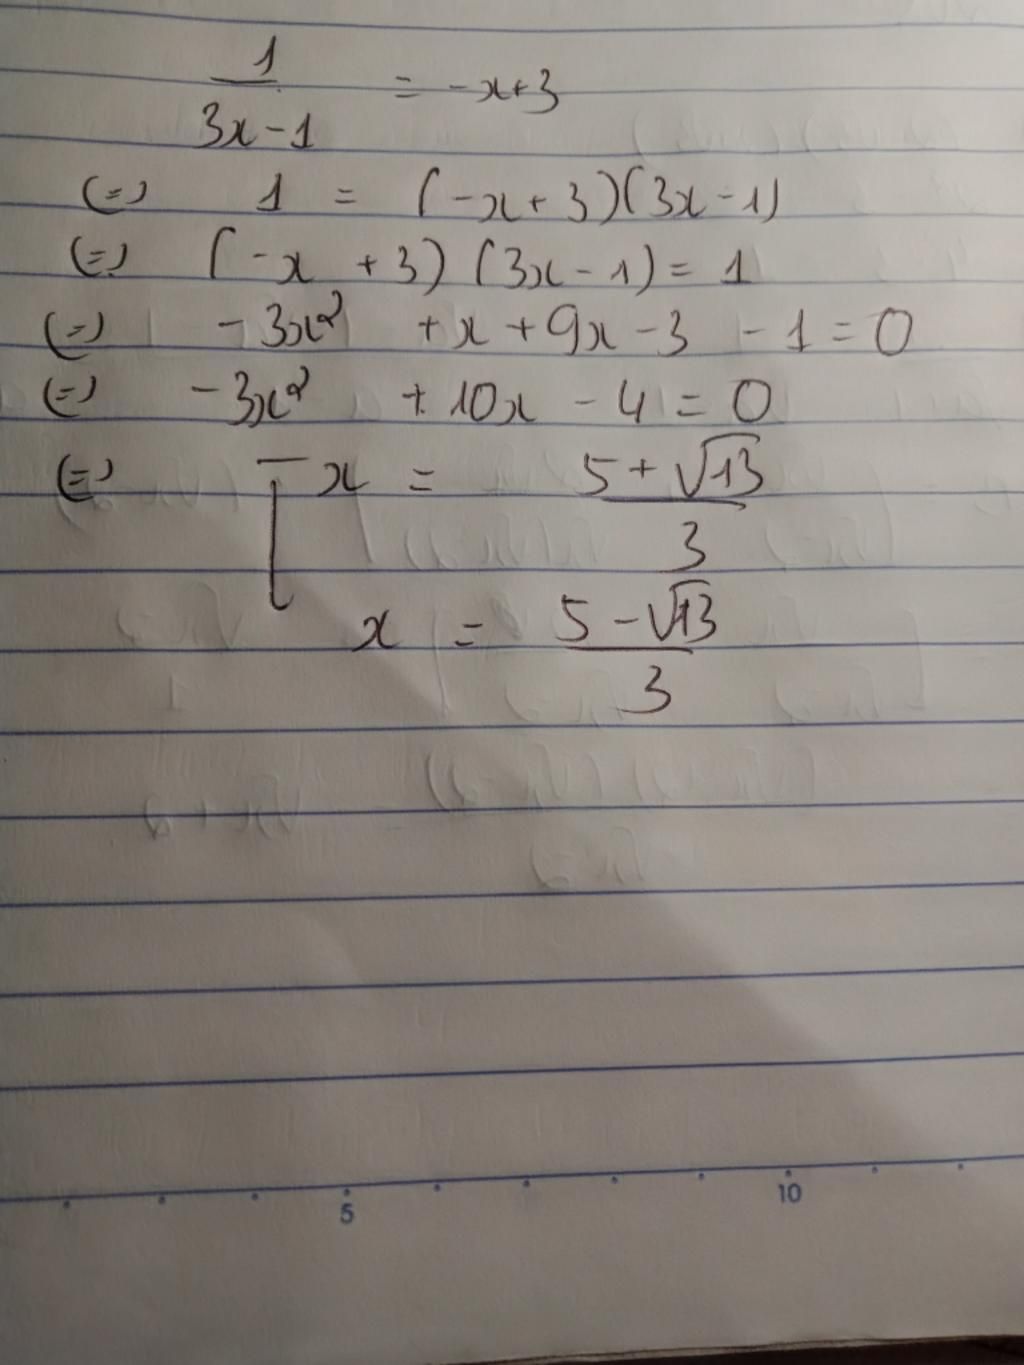 1/(3x-1) = -x+3
(=) 1 = (-x+3)(3x-1)
(=) (-x+3)(3x-1) = 1
(=) -3x² + x + 9x - 3 - 1 = 0
(=) -3x² + 10x - 4 = 0
(=) [ x = (5+√13)/3
x = (5-√13)/3
5 10